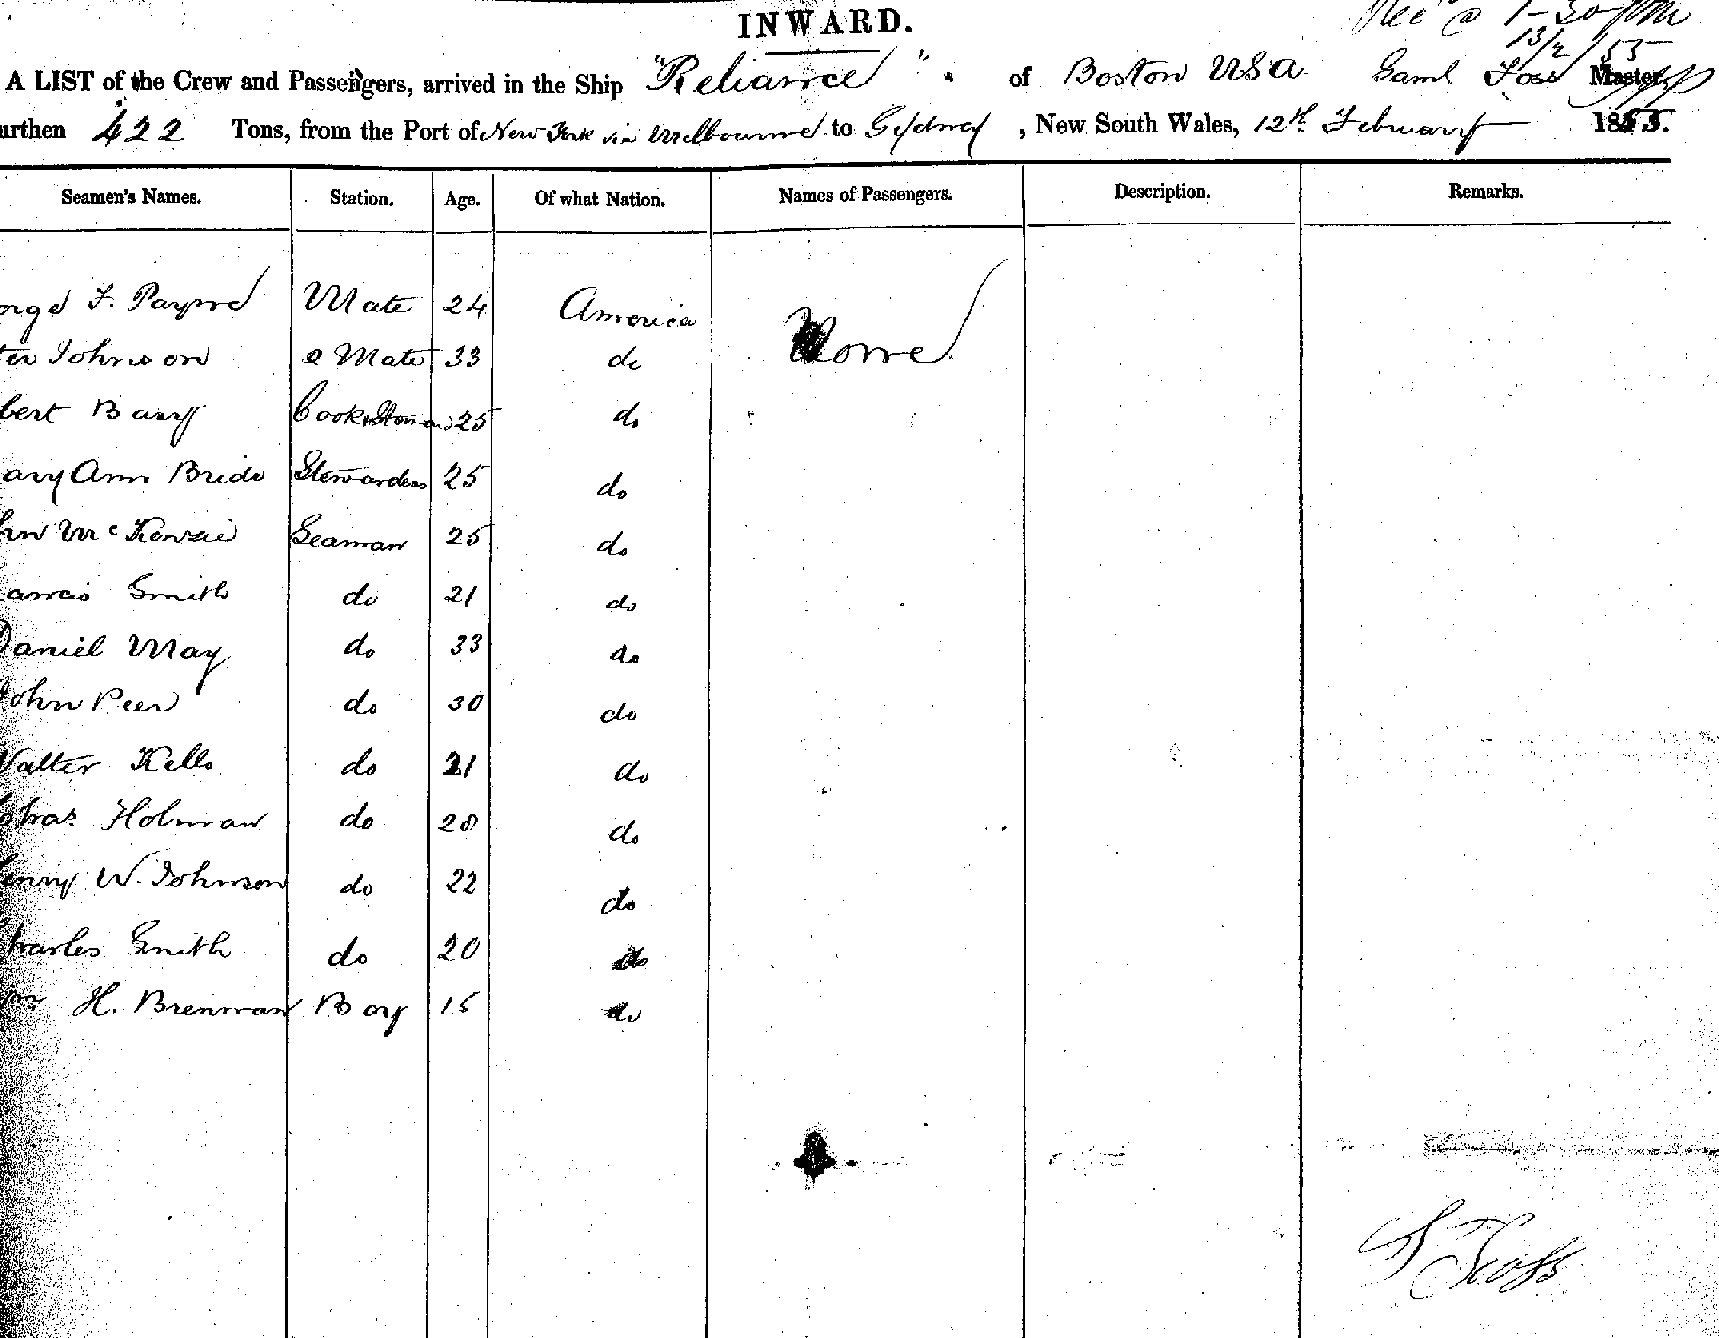 INWARD.
Rec @ 1-30 pm
13/2/55
A LIST of the Crew and Passengers, arrived in the Ship "Reliance" of Boston USA. Saml Foss Master,
urthen 422 Tons, from the Port of New York via Melbourne to Sydney, New South Wales, 12th February 1855.
Seamen's Names. Station. Age. Of what Nation. Names of Passengers. Description. Remarks.
orge F. Payne Mate 24 America None
ter Johnson 2 Mate 33 do
bert Barry Cook & 25 do
ary Ann Bride Stewardess 25 do
hn McKenzie Seaman 25 do
ames Smith do 21 do
Daniel May do 33 do
John Peer do 30 do
Walter Kello do 21 do
Chas Holman do 20 do
enry W. Johnson do 22 do
Charles Smith do 20 do
Wm H. Brennan Boy 15 do
S Foss